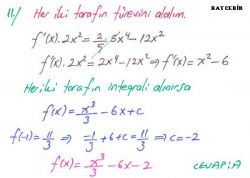 BATCEBİR
11/ Her iki tarafın türevini alalım.
f'(x).2x² = 2/5.5x⁴ - 12x²
f'(x).2x² = 2x⁴ - 12x² ⇒ f'(x) = x² - 6
Her iki tarafın integrali alınırsa
f(x) = x³/3 - 6x + c
f(-1) = 11/3 ⇒ -1/3 + 6 + c = 11/3 ⇒ c = -2
f(x) = x³/3 - 6x - 2 CEVAP: A